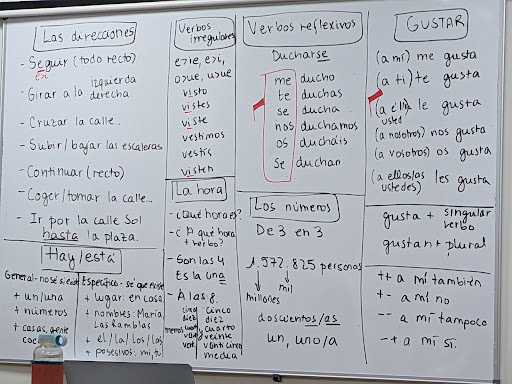 Las direcciones
- Seguir (todo recto)
e>i
- Girar a la izquierda
derecha
- Cruzar la calle.
- Subir/bajar las escaleras
- Continuar (recto)
- Coger/tomar la calle...
- Ir por la calle Sol
hasta la plaza.
Hay/está
General-no sé si existe
+ un/una
+ números
+ casas, gente
Específico - sé que existe
+ lugar: en casa
+ nombres: María,
Las Ramblas
+ el/la/los/las
+ posesivos: mi, tu
Verbos
irregulares
e>ie, e>i,
o>ue, u>ue
visto
vistes
viste
vestimos
vestís
visten
La hora
- ¿Qué hora es?
- ¿A qué hora
+ verbo?
- Son las 4
Es la una
- A las 8.
menos
y
cinco
diez
cuarto
veinte
veinticinco
media
Verbos reflexivos
Ducharse
me ducho
te duchas
se ducha
nos duchamos
os ducháis
se duchan
Los números
De 3 en 3
1.572.825 personas
millones
mil
doscientos/as
un, uno/a
GUSTAR
(a mí) me gusta
(a ti) te gusta
(a él/ella le gusta
usted)
(a nosotros) nos gusta
(a vosotros) os gusta
(a ellos/as les gusta
ustedes)
gusta + singular
verbo
gustan + plural
++ a mí también
+- a mí no
-- a mí tampoco
-+ a mí sí.